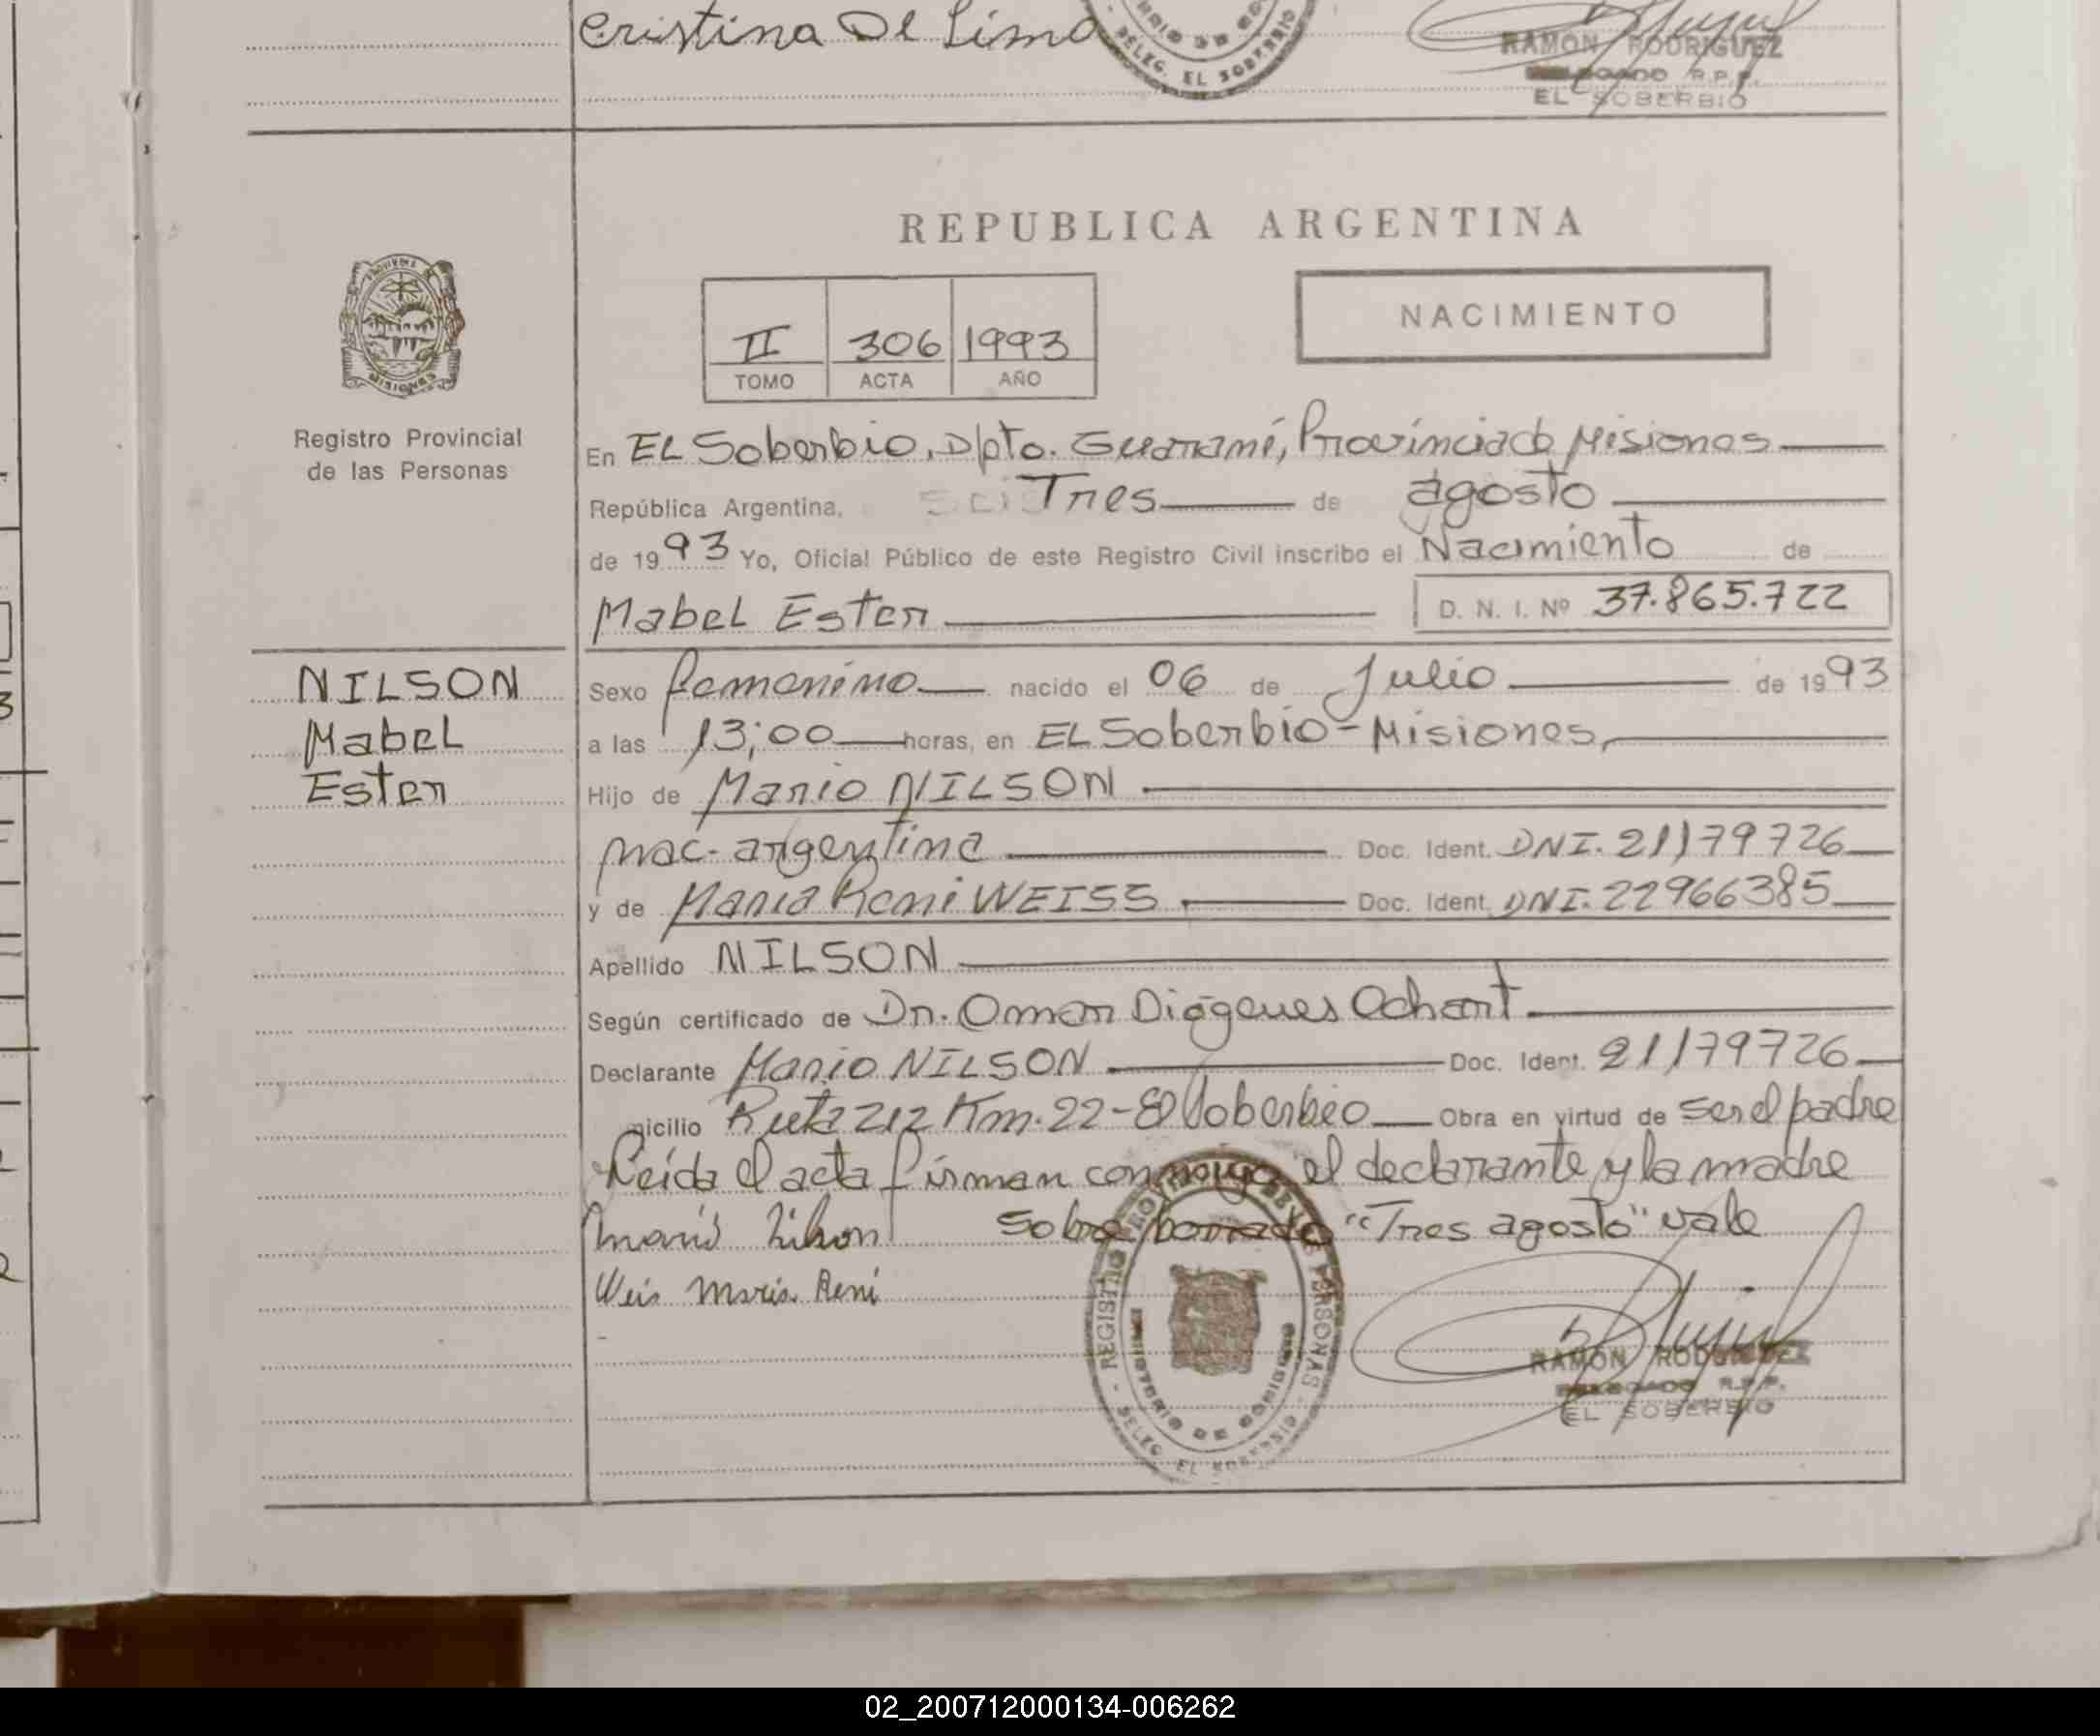 Cristina De Lima
DELEG. EL SOBERBIO
RAMON RODRIGUEZ
DELEGADO R.P.P.
EL SOBERBIO
REPUBLICA ARGENTINA
NACIMIENTO
II 306 1993
TOMO ACTA AÑO
PROVINCIA DE
MISIONES
Registro Provincial
de las Personas
En EL Soberbio, Dpto. Guaraní, Provincia de Misiones
República Argentina, Tres de agosto
de 1993 Yo, Oficial Público de este Registro Civil inscribo el Nacimiento de
Mabel Ester D. N. I. Nº 37.865.722
NILSON
Mabel
Ester
Sexo femenino nacido el 06 de Julio de 1993
a las 13;00 horas, en EL Soberbio - Misiones,
Hijo de Mario NILSON
nac. argentina Doc. Ident. DNI. 21179726
y de Maria Reni WEISS Doc. Ident. DNI. 22966385
Apellido NILSON
Según certificado de Dr. Omar Diógenes Ochart
Declarante Mario NILSON Doc. Ident. 21179726
micilio Ruta 212 Km. 22 - El Soberbio Obra en virtud de ser el padre
Leída el acta firman conmigo el declarante y la madre
Mario Nilson Sobre borrado "Tres agosto" vale
Weis Maria Reni
REGISTRO PROVINCIAL DE LAS PERSONAS
MINISTERIO DE GOBIERNO
DELEG. EL SOBERBIO
RAMON RODRIGUEZ
DELEGADO R.P.P.
EL SOBERBIO
02_200712000134-006262